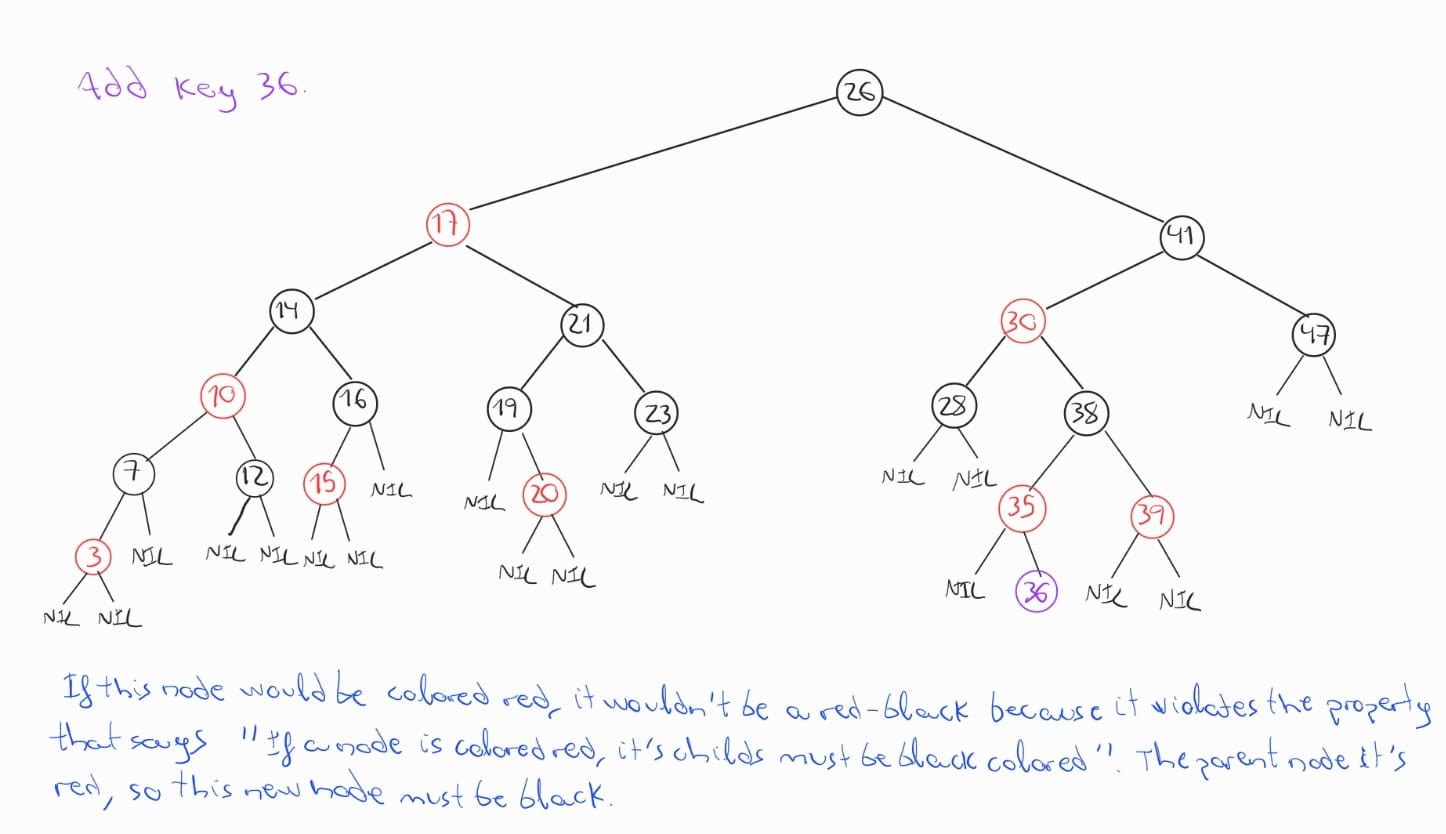 Add Key 36.
26
17
41
14
21
30
47
10
16
19
23
28
38
NIL NIL
7
12
15
NIL
NIL
20
NIL NIL
NIL NIL
35
39
3
NIL
NIL NIL
NIL NIL
NIL NIL
NIL
36
NIL NIL
NIL NIL
If this node would be colored red, it wouldn't be a red-black because it violates the property
that says "If a node is colored red, it's childs must be black colored". The parent node it's
red, so this new node must be black.